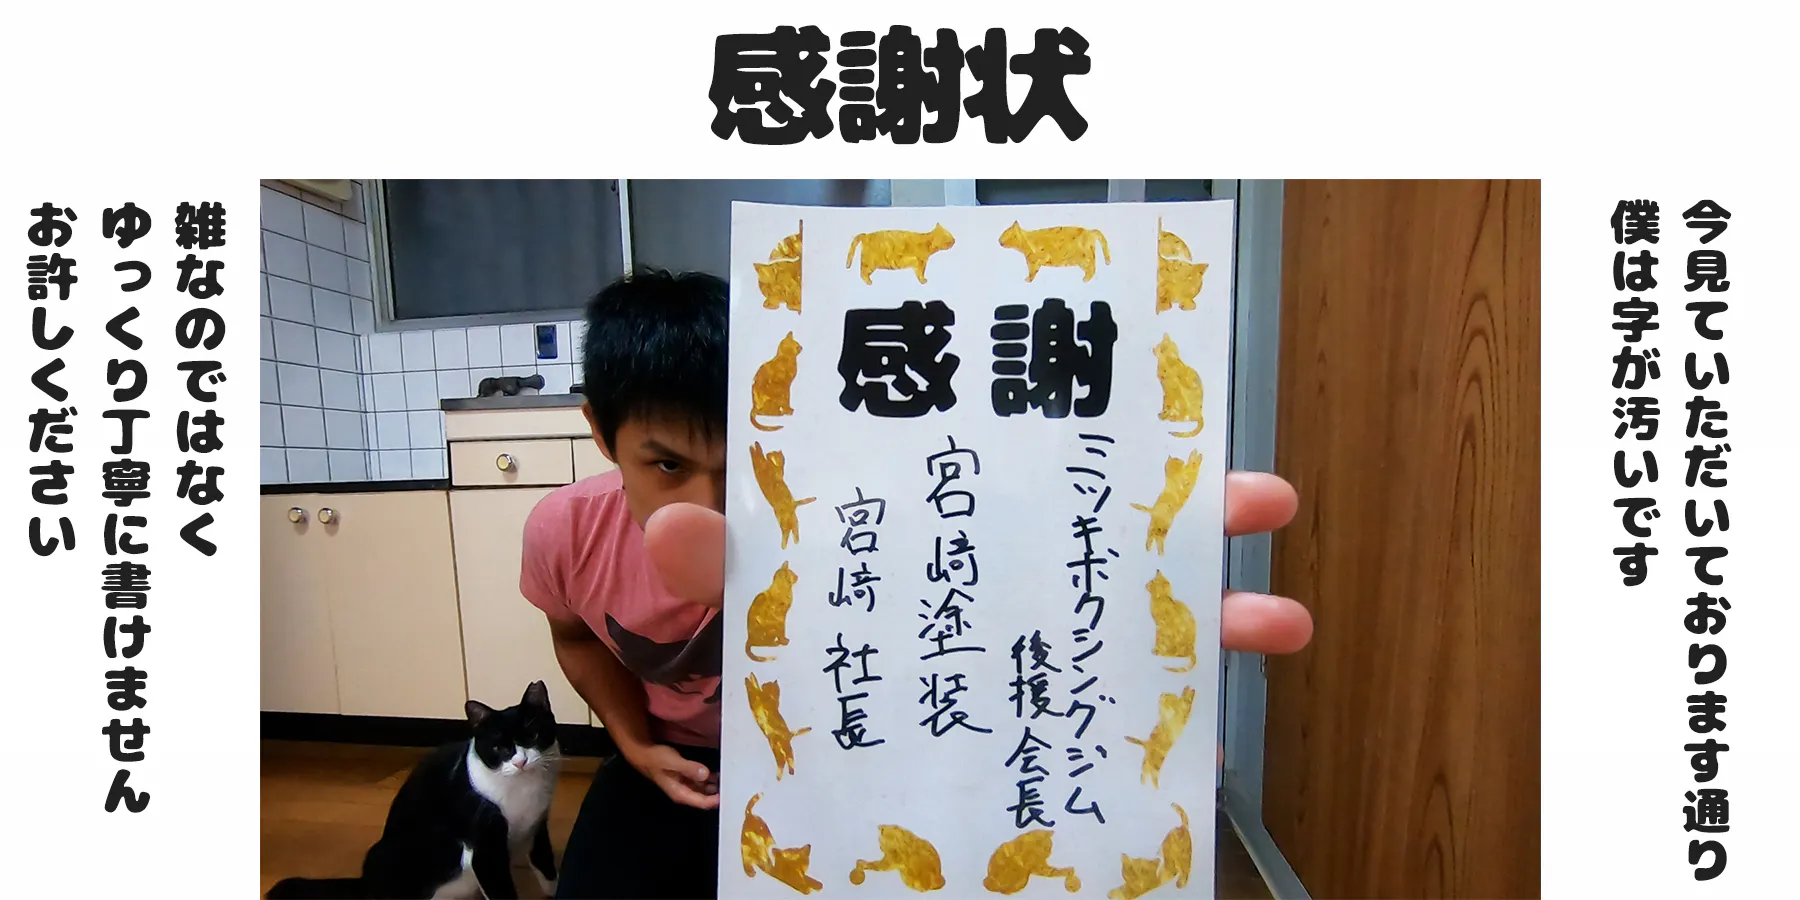 感謝状
今見ていただいております通り
僕は字が汚いです
感謝
ミツキボクシングジム
後援会長
宮崎塗装
宮﨑 社長
雑なのではなく
ゆっくり丁寧に書けません
お許しください